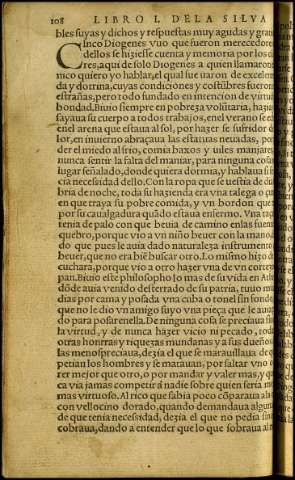 108 LIBRO I. DE LA SILVA
bles suyas y dichos y respuestas muy agudas y graue
Cinco Diogenes vuo que fueron merecedores
dellos se hiziesse cuenta y memoria por los
res, aqui de solo Diogenes a quien llamaron
nico quiero yo hablar, el qual fue uaron de excelen
da y dotrina, cuyas condiciones y costũbres fueron
estrañas, pero todo fundado en intencion de virtud
bondad. Biuio siempre en pobreza volũtaria, hazie
sayaua su cuerpo a todos trabajos, en el verano se echa
en el arena que estaua al sol, por hazer se sufridor de
lor, en inuierno abraçaua las estatuas neuadas, por
der el miedo al frio, comia baxos y uiles manjares
nunca sentir la falta del maniar, para ninguna cosa
lugar señalado, donde quiera dormia, y hablaua si
cia necessidad dello. Con la ropa que se uestia de
bria de noche, toda su hazienda era vna talega o
en que traya su pobre comida, y vn bordon que
por su caualgadura quãdo estaua enfermo. Vna
tenia de palo con que beuia de camino en las fuentes
quebro, porque vio a vn niño beuer con la mano
do que pues le auia dado naturaleza instrumento
beuer, que no era biẽ buscar otro. Lo mismo hizo de
cuchara, porque vio a otro hazer vna de vn cortezo
pan. Biuio este philosopho lo mas de su vida en Athe
dõde auia venido desterrado de su patria, tuuo mu
dias por cama y posada vna cuba o tonel sin fondo
que no le dio vn amigo suyo vna pieça que le auia
do para posar en ella. De ninguna cosa se preciaua sino
la virtud, y de nunca hazer vicio ni pecado, todas
otras honrras y riquezas mundanas y a sus dueños
las menospreciaua, dezia el que se marauillaua de
petian los hombres y se matauan, por saltar vno o
rer mejor que otro, o por mandar y valer mas, y
ca via jamas competir a nadie sobre quien seria
mas virtuoso. Al rico que sabia poco cõparaua al
con vellocino dorado, quando demandaua alguna
de que tenia necesidad, dezia el que no pedia sino
cobraua, dando a entender que lo que sobraua al